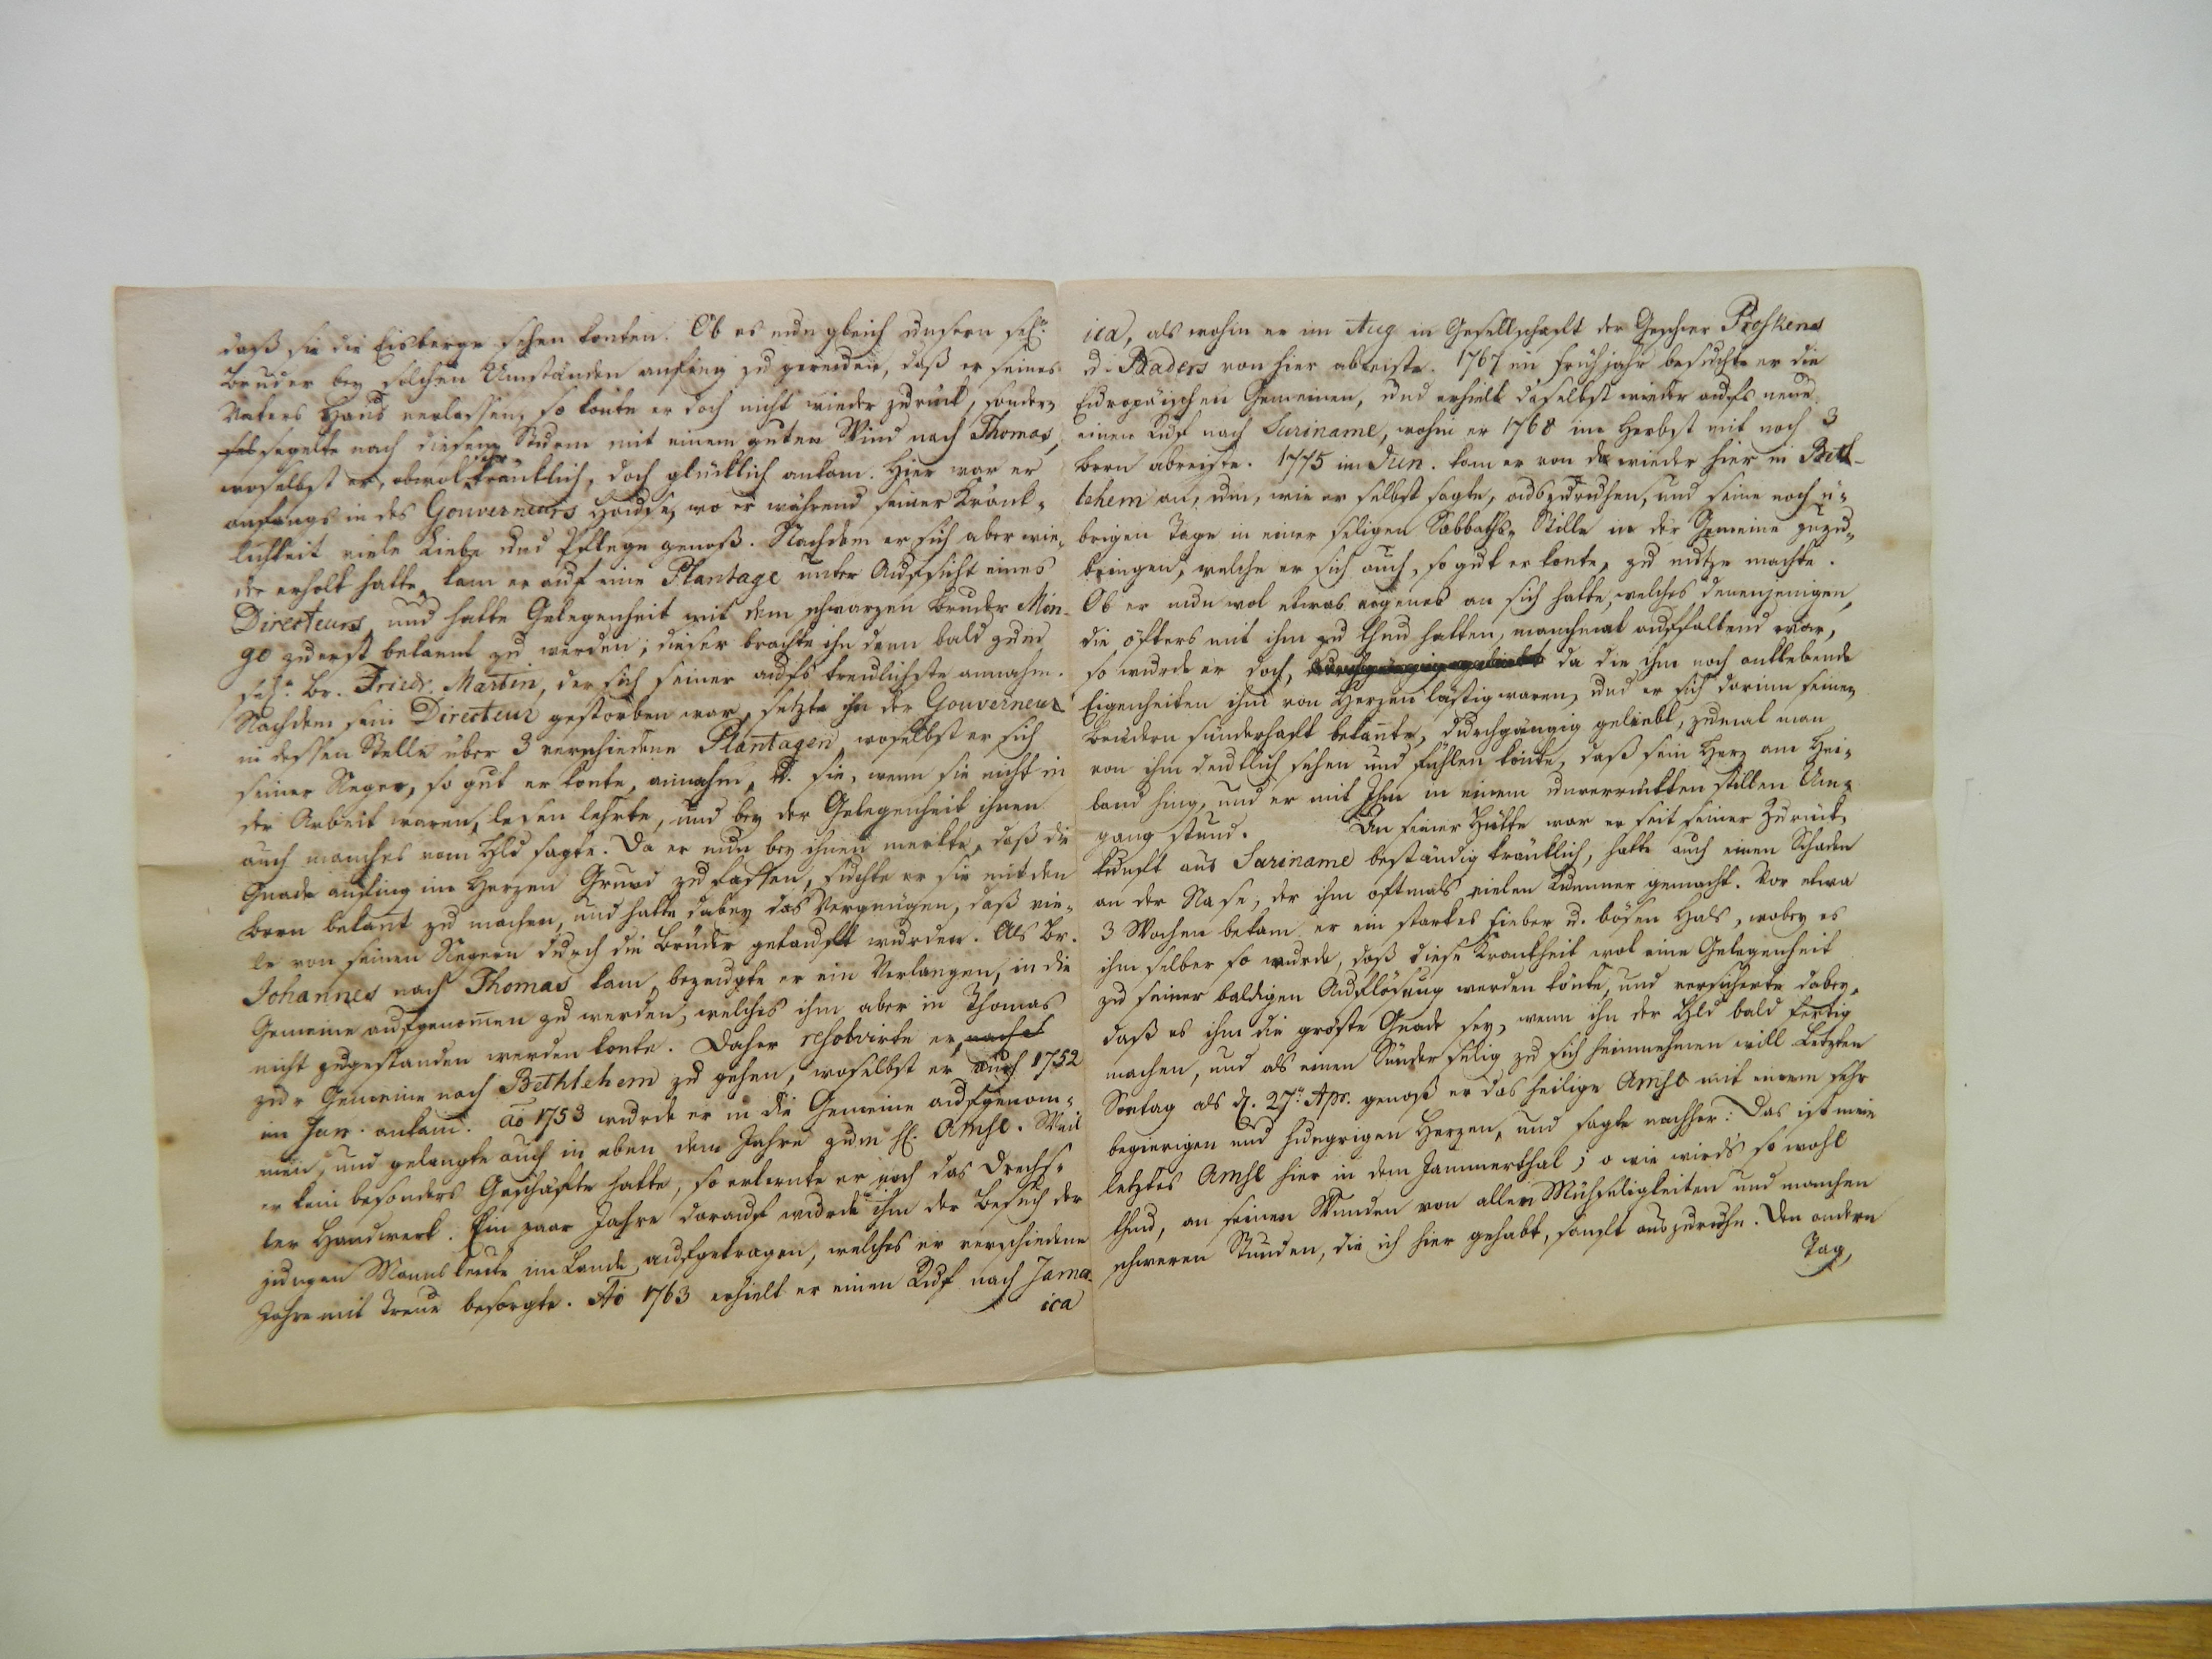 daß sie die Eisberge sehen konten. Ob es nun gleich unsern sel.
Bruder bey solchen Umständen anfing zu gereuen, daß er seines
Vaters Haus verlassen, so konte er doch nicht wieder zurück, sondern
segelte nach diesem Sturm mit einem guten Wind nach Thomas,
woselbst er, obwol sehr kränklich, doch glücklich ankam. Hier war er
anfangs in des Gouverneurs Hause, wo er während seiner Kränk-
lichkeit viele Liebe und Pflege genoß. Nachdem er sich aber wie-
der erholt hatte, kam er auf eine Plantage unter Aufsicht eines
Directeurs, und hatte Gelegenheit mit dem schwarzen Bruder Min-
go zuerst bekannt zu werden; dieser brachte ihn denn bald zum
sel. Br. Friedr. Martin, der sich seiner aufs treulichste annahm.
Nachdem sein Directeur gestorben war, setzte ihn der Gouverneur
in dessen Stelle über 3 verschiedene Plantagen, woselbst er sich
seiner Neger, so gut er konte, annahm, u. sie, wenn sie nicht in
der Arbeit waren, lesen lehrte, und bey der Gelegenheit ihnen
auch manches vom Hld sagte. Da er nun bey ihnen merkte, daß die
Gnade anfing im Herzen Grund zu fassen, suchte er sie mit den
Brrn bekant zu machen, und hatte dabey das Vergnügen, daß vie-
le von seinen Negern durch die Brüder getauft wurden. Als Br.
Johannes nach Thomas kam, bezeugte er ein Verlangen, in die
Gemeine aufgenommen zu werden, welches ihm aber in Thomas
nicht zugestanden werden konte. Daher resolvirte er nach
zur Gemeine nach Bethlehem zu gehen, woselbst er auch 1752
im Jan. ankam. Ao 1753 wurde er in die Gemeine aufgenom-
men, und gelangte auch in eben dem Jahre zum h. Amhl. Weil
er kein besonders Geschäfte hatte, so erlernte er noch das Drechs-
ler Handwerk. Ein paar Jahre darauf wurde ihm der Besuch der
jungen Mannsleute im Lande aufgetragen, welches er verschiedene
Jahre mit Treue besorgte. Ao 1763 erhielt er einen Ruf nach Jama-
ica
ica, als wohin er im Aug. in Gesellschaft der Geschwr
u. Raders von hier abreiste. 1767 im Frühjahr besuchte er die
Europäischen Gemeinen, und erhielt daselbst wieder aufs neue
einen Ruf nach Suriname, wohin er 1768 im Herbst mit noch 3
Brrn abreiste. 1775 im Jun. kam er von da wieder hier in Beth-
lehem an, um, wie er selbst sagte, auszuruhen, und seine noch ü-
brigen Tage in einer seligen Sabbaths-Stille in der Gemeine zuzu-
bringen, welche er sich auch, so gut er konte, zu nutze machte.
Ob er nun wol etwas eigenes an sich hatte, welches denenjenigen,
die öfters mit ihm zu thun hatten, manchmal auffallend war,
so wurde er doch, durchgängig geliebt da die ihm noch anklebende
Eigenheiten ihm von Herzen lästig waren, und er sich darinn seinen
Brüdern sünderhaft bekante, durchgängig geliebt, zumal man
von ihm deutlich sehen und fühlen konte, daß sein Herz am Hei-
land hing, und er mit Ihm in einem unverrückten stillen Um-
gang stund. An seiner Hütte war er seit seiner Zurück-
kunft aus Suriname beständig kränklich, hatte auch einen Schaden
an der Nase, der ihm oftmals vielen Kummer gemacht. Vor etwa
3 Wochen bekam er ein starkes Fieber u. bösen Hals, wobey es
ihm selber so wurde, daß diese Krankheit wol eine Gelegenheit
zu seiner baldigen Auflösung werden könte, und versicherte dabey,
daß es ihm die gröste Gnade sey, wenn ihn der Hld bald fertig
machen, und als einen Sünder selig zu sich heimnehmen will. Letzten
Sontag als d. 27. Apr. genoß er das heilige Amhl mit einem sehr
begierigen und hungrigen Herzen, und sagte nachher: Das ist mein
letztes Amhl hier in dem Jammerthal; o wie wirds so wohl
thun, an seinen Wunden von allen Mühseligkeiten und manchen
schweren Stunden, die ich hier gehabt, sanft auszuruhn. Den andern
Tag,